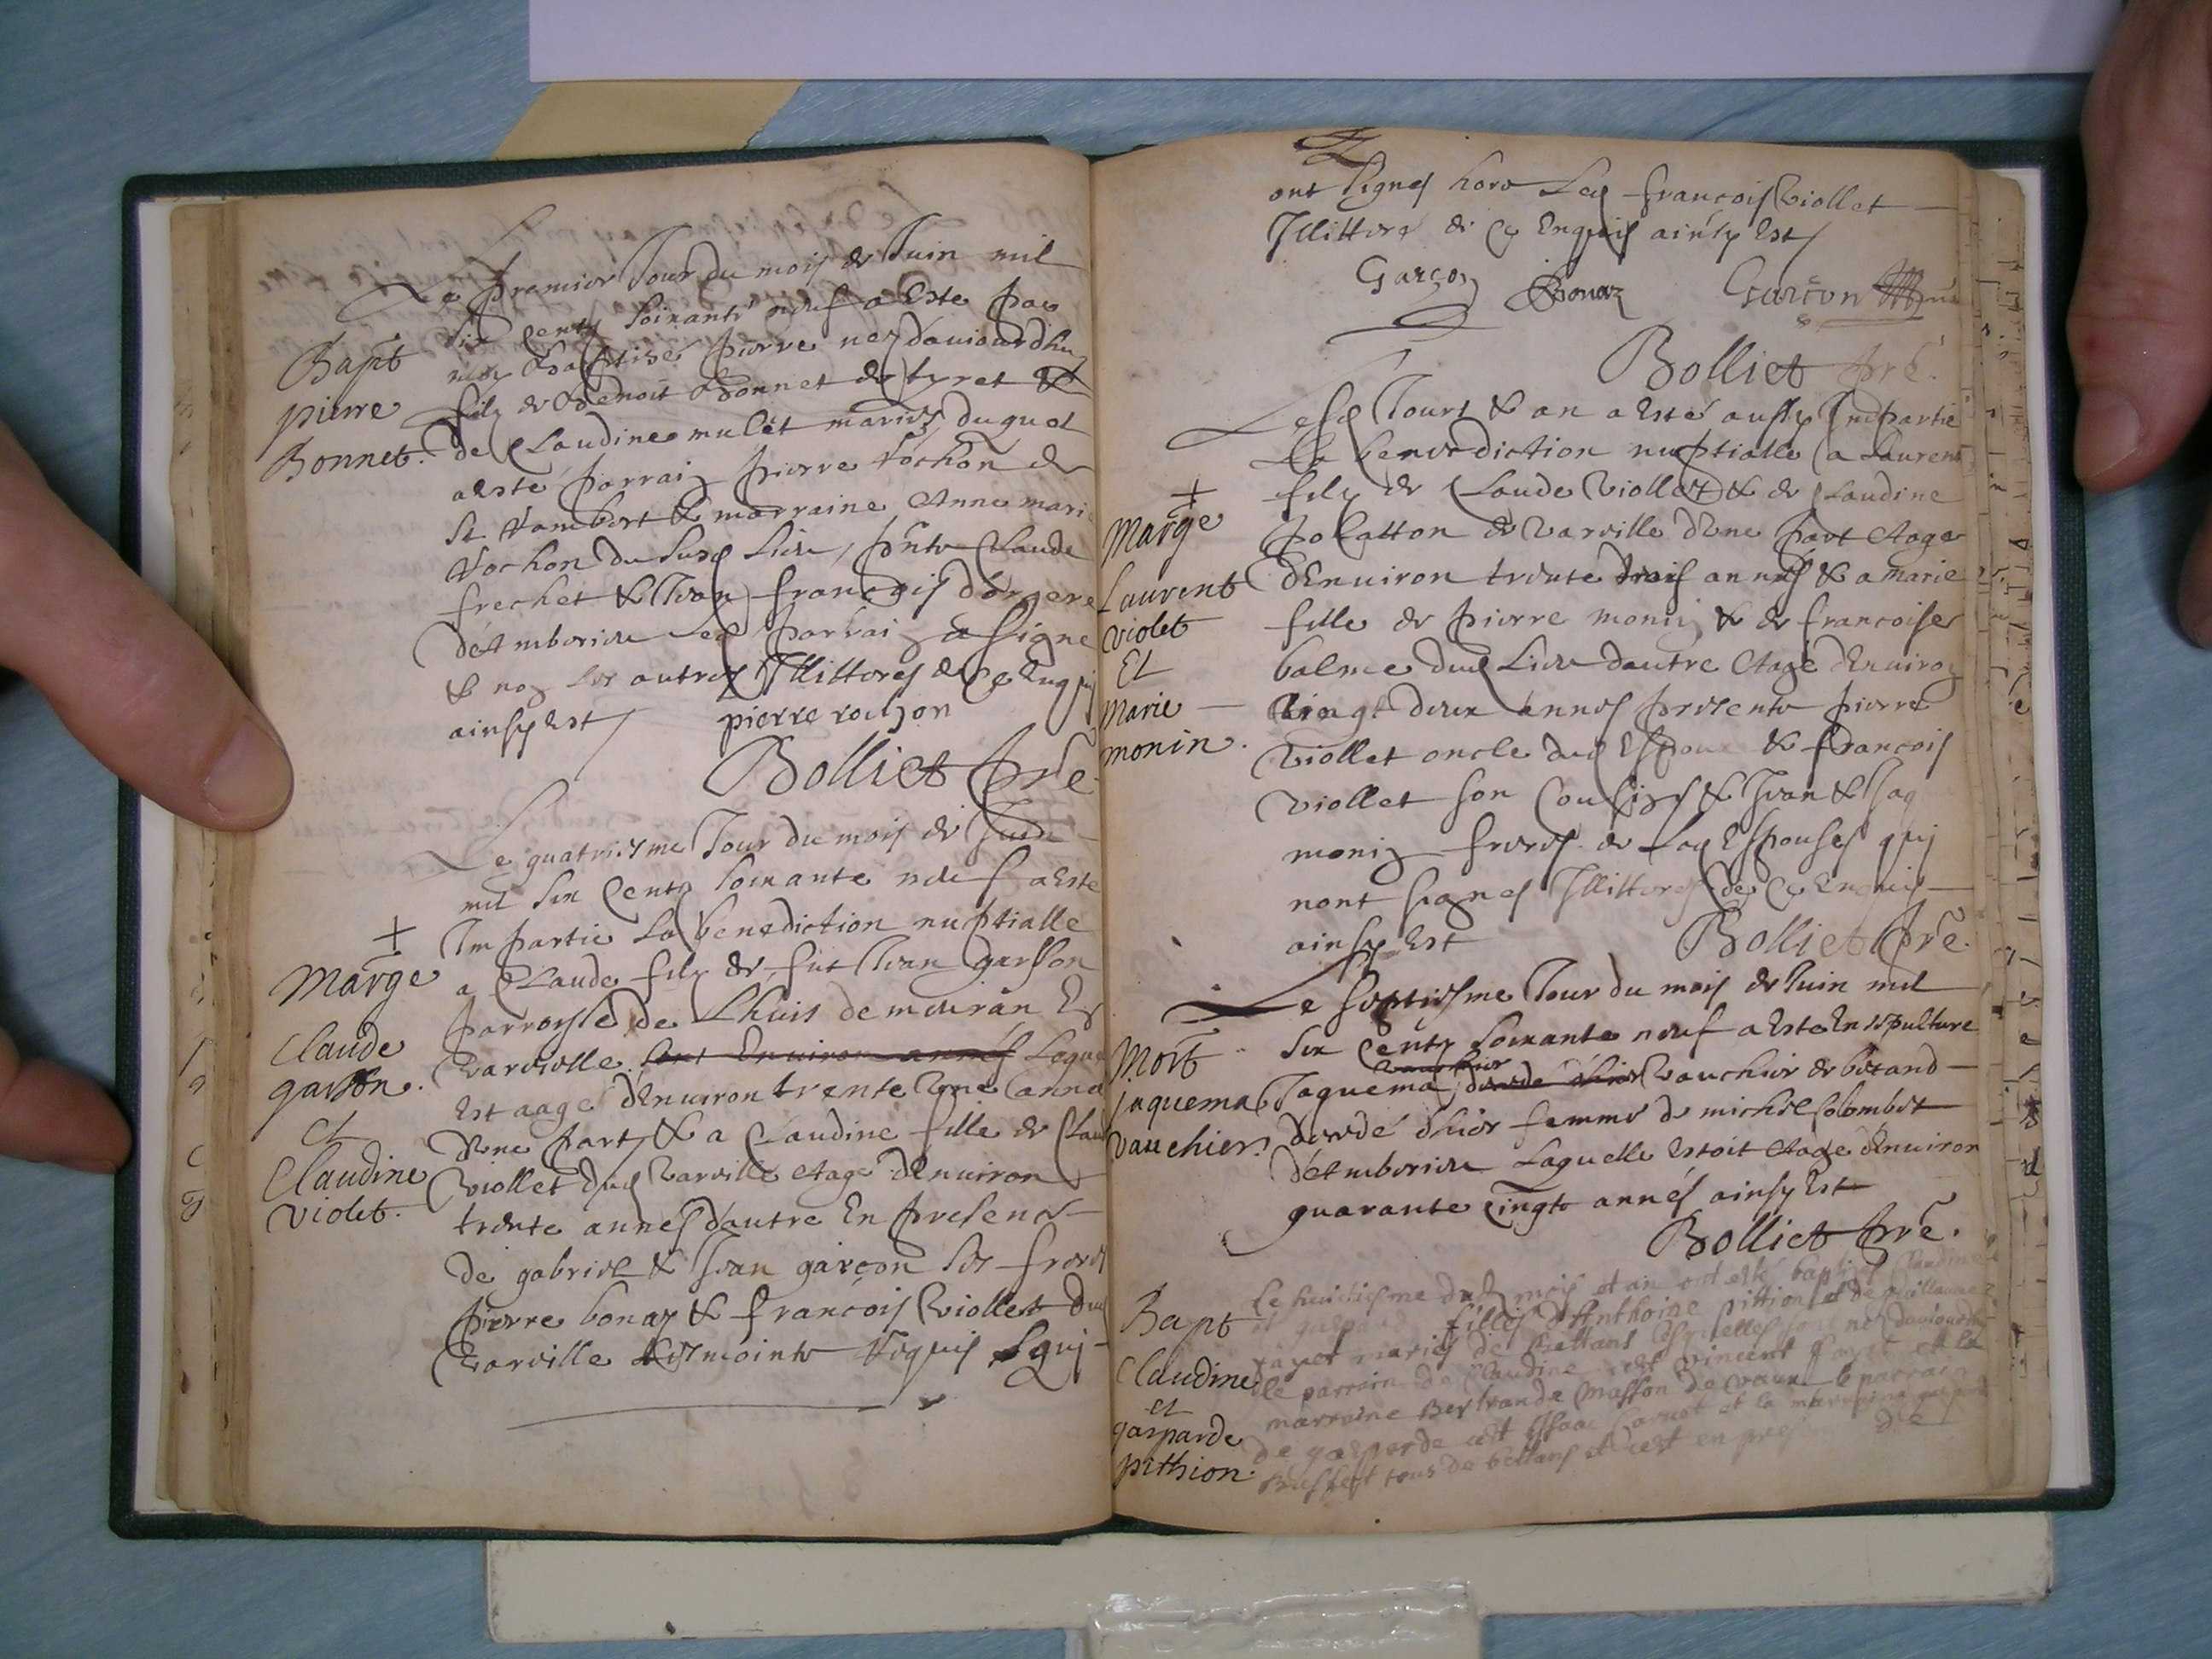 Le premier Jour du mois de Juin mil
six centz soixante neuf a Este par
moy Baptisé pierre nez dauiourdhuy
filz de Benoit Bonnet de tyret &
de Claudine mulet mariez duquel
a esté parrain pierre rochon de
St rambert & marraine Anne marie
rochon du susd lieu, pnts Claude
frechet & Jean francois dorgere
d'Amberieu led parrain a signe
& non les autres Illitteres de ce Enquis
ainsy est / pierre roujon
Bolliet pre
Bapt
pierre
Bonnet.
Le quatriesme Jour du mois de Juin
mil six centz soixante neuf a Este
Impartie la benediction nuptialle
a Claude filz de fut Jean garsson
parroysse de Lhuis demeuran En
Varvielle sont Environ annés Leque
est aagé d'Environ trente une anne
d'une part & a Claudine fille de Clau
viollet dud Varville Aage d'Enuiron
trente annes d'autre En presence
de gabriel & Jean garcon ses freres
pierre bonaz & francois viollet dud
Varville tesmoints requis Lqui
+
Marge
Claude
garsson.
et
Claudine
violet.
ont signes hors Led francois Viollet
Illittere de ce Enquis ainsy Est /
Garçon Bonaz Garçon
Bolliet pre
Lesd Jourt & an a Esté aussy Impartie
La benediction nuptialle a Laurent
filz de Claude Viollet & de Claudine
pollatton de Varville d'une part Aage
d'Enuiron trente trois annés & a marie
fille de pierre monin & de francoise
balme dud Lieu dautre Aagé d'Enuiron
Vingt deux annes presents pierre
Viollet oncle dud Espoux & francois
viollet son cousin & Jean & Jaq
monin freres de Lad Espouses qui
nont signes Illitteres de ce Enquis
ainsy Est Bolliet pre.
+
Marge
Laurent
violet
Et
Marie
monin.
Le septiesme Jour du mois de Juin mil
six centz soixante neuf a Este Ensepulture
vauchier
Jaquema Vauchier de
femme de michel colombet
d'Amberieu Laquelle estoit Aage d'Enuiron
quarante cingts annés ainsy Est
Bolliet pre.
Mort
jaquema
vauchier.
Le huictiesme dud mois et an ont esté baptisé Claudine
et gasparde filles d'Anthoine pittion et de guillauma
mariés de Bettans lesquelles sont nés dauiourdh
le parrain de Claudine est vincent et la
marraine Bertrande Masson de vaux le parrain
de gasparde est Isaac et la marraine
tous de bettans et est en pres de
Bapt
Claudine
et
gasparde
pithion.